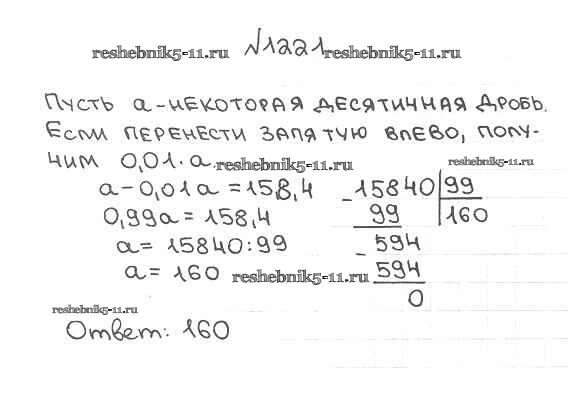 №1221
reshebnik5-11.ru reshebnik5-11.ru
Пусть а - некоторая десятичная дробь.
Если перенести запятую влево, полу-
чим 0,01·а. reshebnik5-11.ru reshebnik5-11.ru
а - 0,01а = 158,4
0,99а = 158,4
а = 15840:99
а = 160 reshebnik5-11.ru
15840 99
- 99 160
- 594
594
0
reshebnik5-11.ru
Ответ: 160